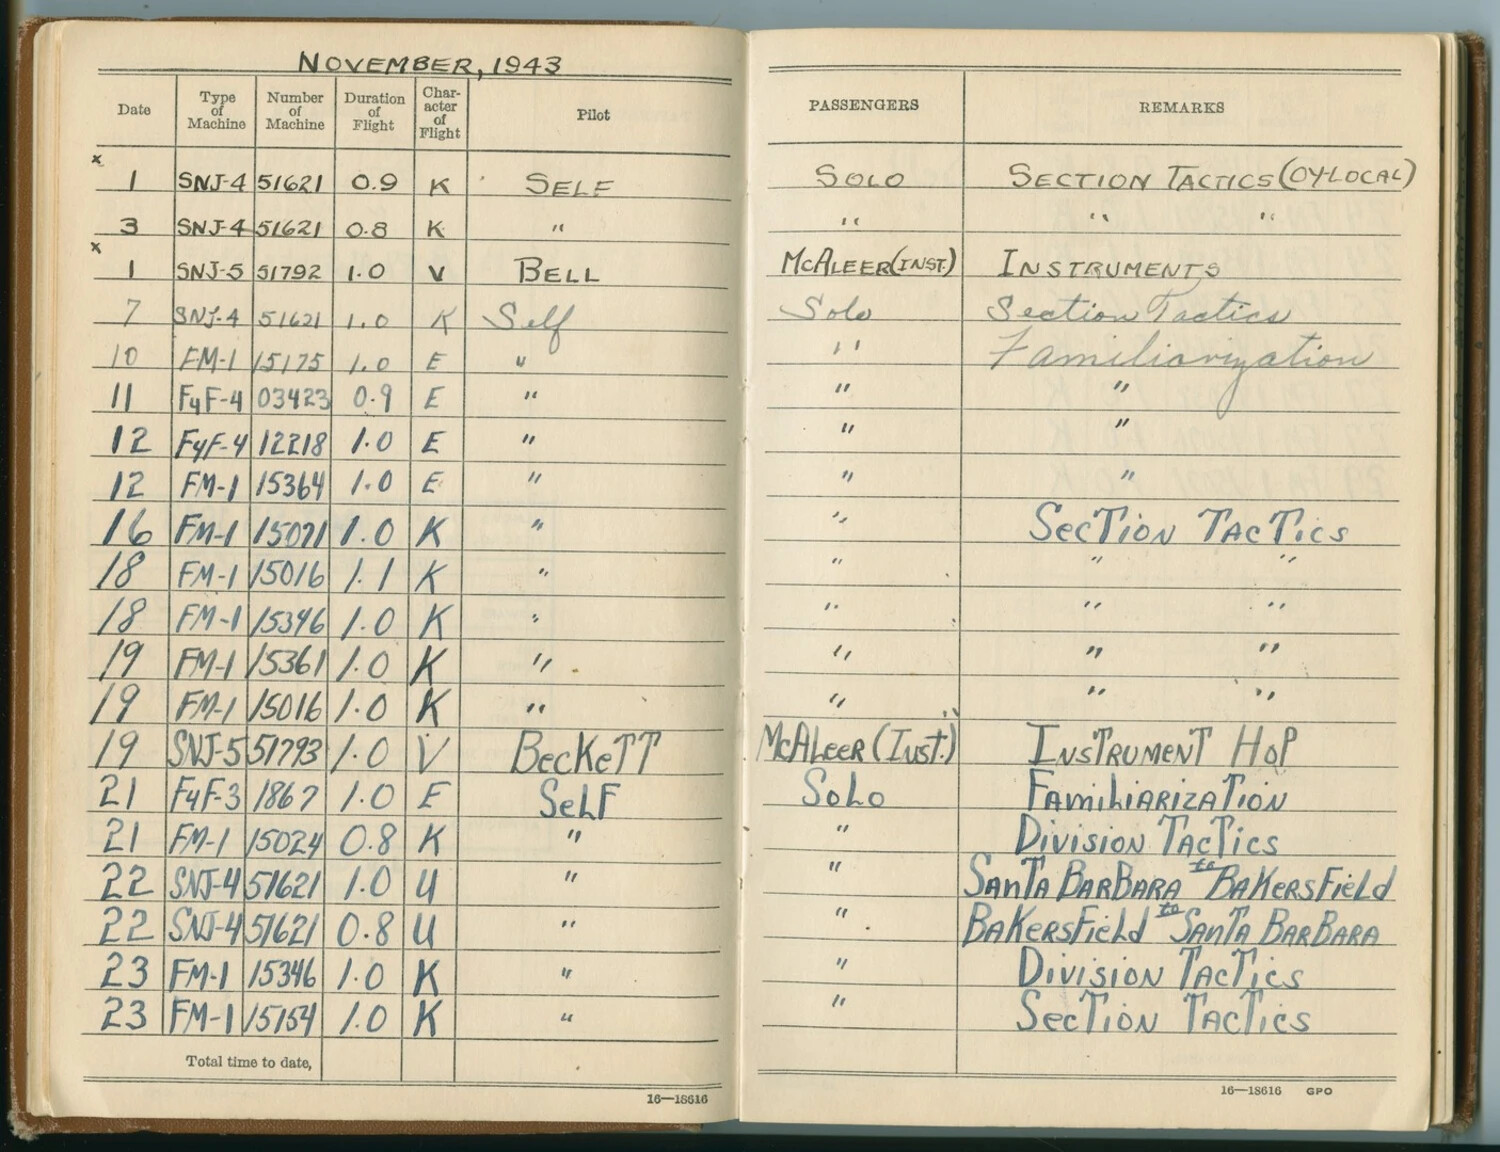 NOVEMBER, 1943
Date Type of Machine Number of Machine Duration of Flight Character of Flight Pilot PASSENGERS REMARKS
x
1 SNJ-4 51621 0.9 K SELF SOLO SECTION TACTICS (OY-LOCAL)
3 SNJ-4 51621 0.8 K " " " "
x
1 SNJ-5 51792 1.0 V BELL MCALEER (INST.) INSTRUMENTS
7 SNJ-4 51621 1.0 K Self Solo Section Tactics
10 FM-1 15175 1.0 E " " Familiarization
11 F4F-4 03423 0.9 E " " "
12 F4F-4 12218 1.0 E " " "
12 FM-1 15364 1.0 E " " "
16 FM-1 15071 1.0 K " " SecTion TacTics
18 FM-1 15016 1.1 K " " " "
18 FM-1 15346 1.0 K " " " "
19 FM-1 15361 1.0 K " " " "
19 FM-1 15016 1.0 K " " " "
19 SNJ-5 51793 1.0 V BecKeTT McALeeR (InsT.) InsTRUMenT HoP
21 F4F-3 1867 1.0 E SeLF SoLo FAMiLiARizATion
21 FM-1 15024 0.8 K " " Division TacTics
22 SNJ-4 51621 1.0 U " " SanTa BarBara to BaKersField
22 SNJ-4 51621 0.8 U " " BaKersField to SanTa BarBara
23 FM-1 15346 1.0 K " " Division TacTics
23 FM-1 15154 1.0 K " " SecTion TacTics
Total time to date,
16—18616
16—18616 GPO